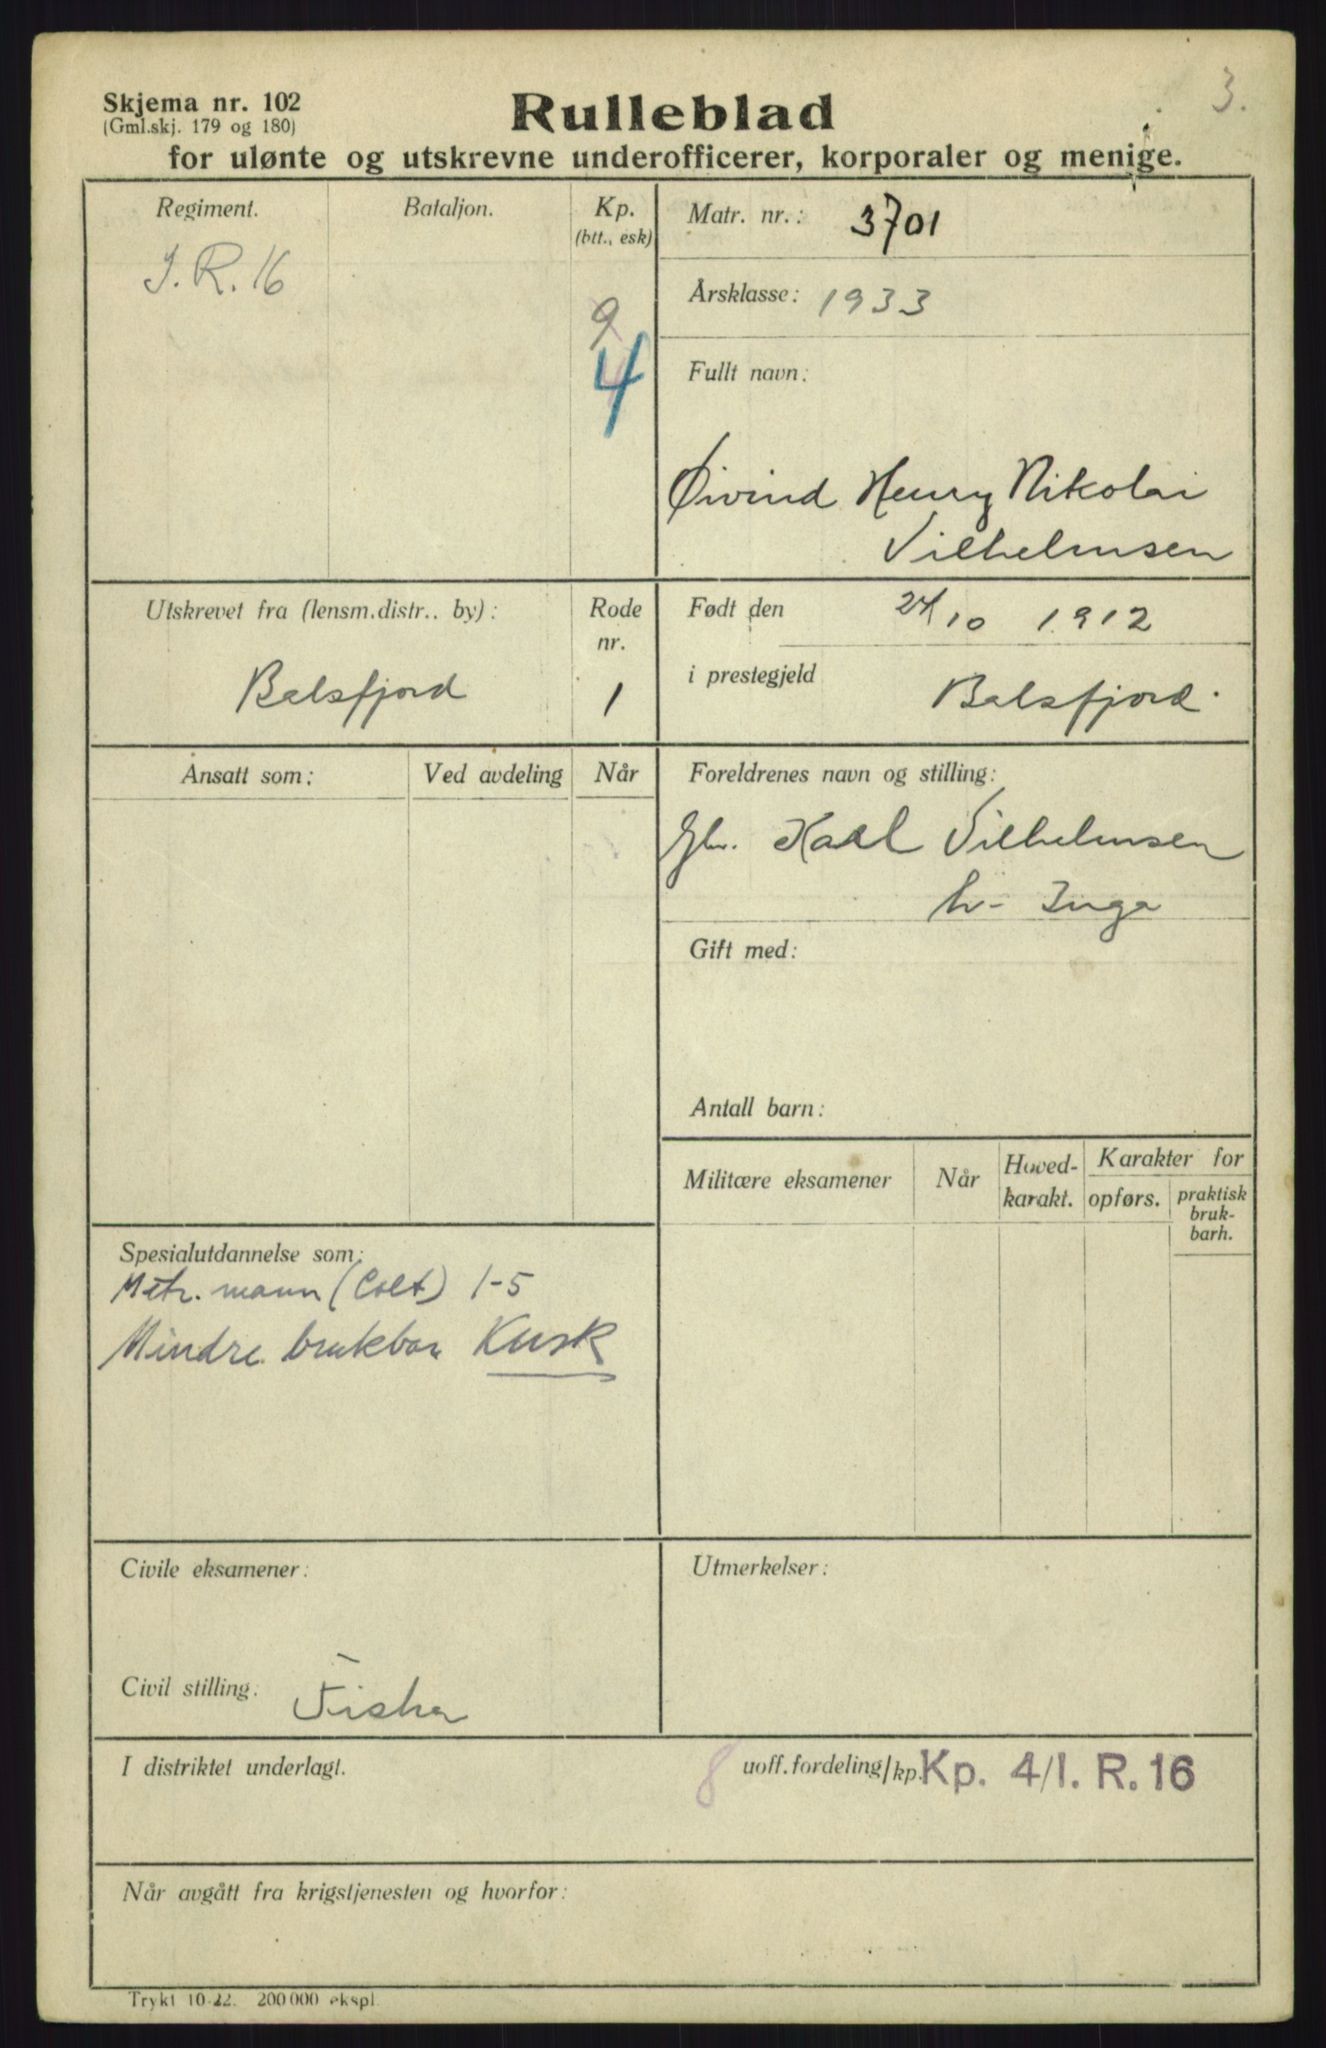 3.
Skjema nr. 102
(Gml.skj. 179 og 180)
Rulleblad
for ulønte og utskrevne underofficerer, korporaler og menige.
Regiment.
Bataljon.
Kp.
(btt., esk)
I. R. 16
9
4
Matr. nr.: 3701
Årsklasse: 1933
Fullt navn:
Øivind Henry Nikolai
Vilhelmsen
Utskrevet fra (lensm.distr.. by):
Balsfjord
Rode
nr.
1
Født den 24/10 1912
i prestegjeld Balsfjord.
Ansatt som:
Ved avdeling
Når
Foreldrenes navn og stilling:
Karl Vilhelmsen
h- Inga
Gift med:
Antall barn:
Militære eksamener
Når
Hoved-
karakt.
Karakter for
opførs.
praktisk
bruk-
barh.
Spesialutdannelse som:
Mitr. mann (Colt) 1-5
Mindre brukbar Kusk
Civile eksamener:
Civil stilling: Fisker
Utmerkelser:
I distriktet underlagt.
8 uoff. fordeling/kp. Kp. 4/I. R. 16
Når avgått fra krigstjenesten og hvorfor:
Trykt 10-22. 200 000 ekspl.